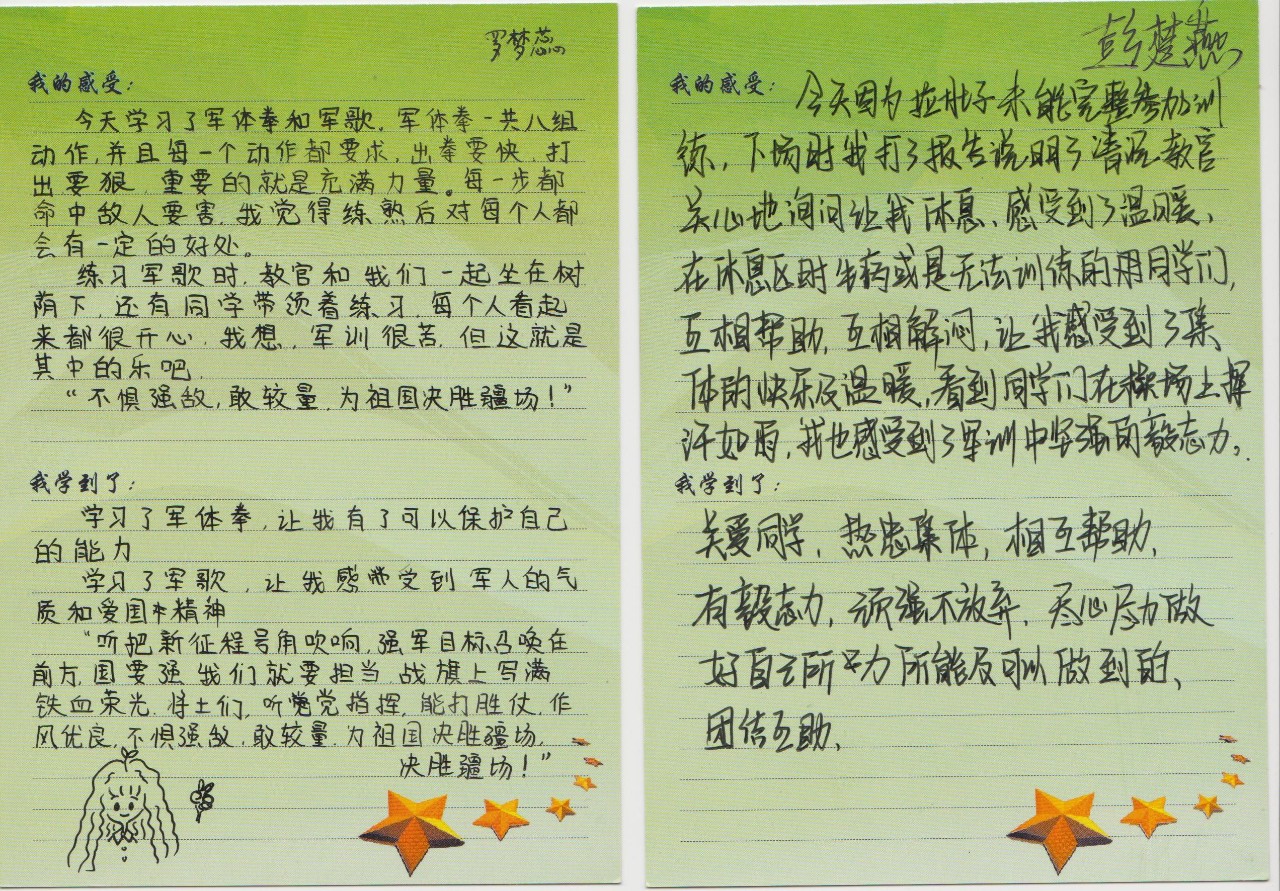 罗梦蕊
我的感受:
今天学习了军体拳和军歌,军体拳一共八组
动作,并且每一个动作都要求,出拳要快,打
出要狠,重要的就是充满力量。每一步都
命中敌人要害,我觉得练熟后对每个人都
会有一定的好处。
练习军歌时,教官和我们一起坐在树
荫下,还有同学带领着练习,每个人看起
来都很开心,我想,军训很苦,但这就是
其中的乐吧.
“不惧强敌,敢较量,为祖国决胜疆场!”
我学到了:
学习了军体拳,让我有了可以保护自己
的能力
学习了军歌,让我感受到军人的气
质和爱国精神
“听把新征程号角吹响,强军目标召唤在
前方,国要强我们就要担当,战旗上写满
铁血荣光,将士们,听党指挥,能打胜仗,作
风优良,不惧强敌,敢较量,为祖国决胜疆场,
决胜疆场!”
彭楚燕
我的感受:
今天因为拉肚子未能完整参加训
练,下场时我打了报告说明了情况教官
关心地询问让我休息、感受到了温暖,
在休息区时生病或是无法训练的用同学们,
互相帮助,互相解闷,让我感受到了集
体的快乐及温暖,看到同学们在操场上挥
汗如雨,我也感受到了军训中坚强的毅志力。
我学到了:
关爱同学,热忠集体,相互帮助,
有毅志力,顽强不放弃,尽心尽力做
好自己所力所能及可以做到的、
团结互助、